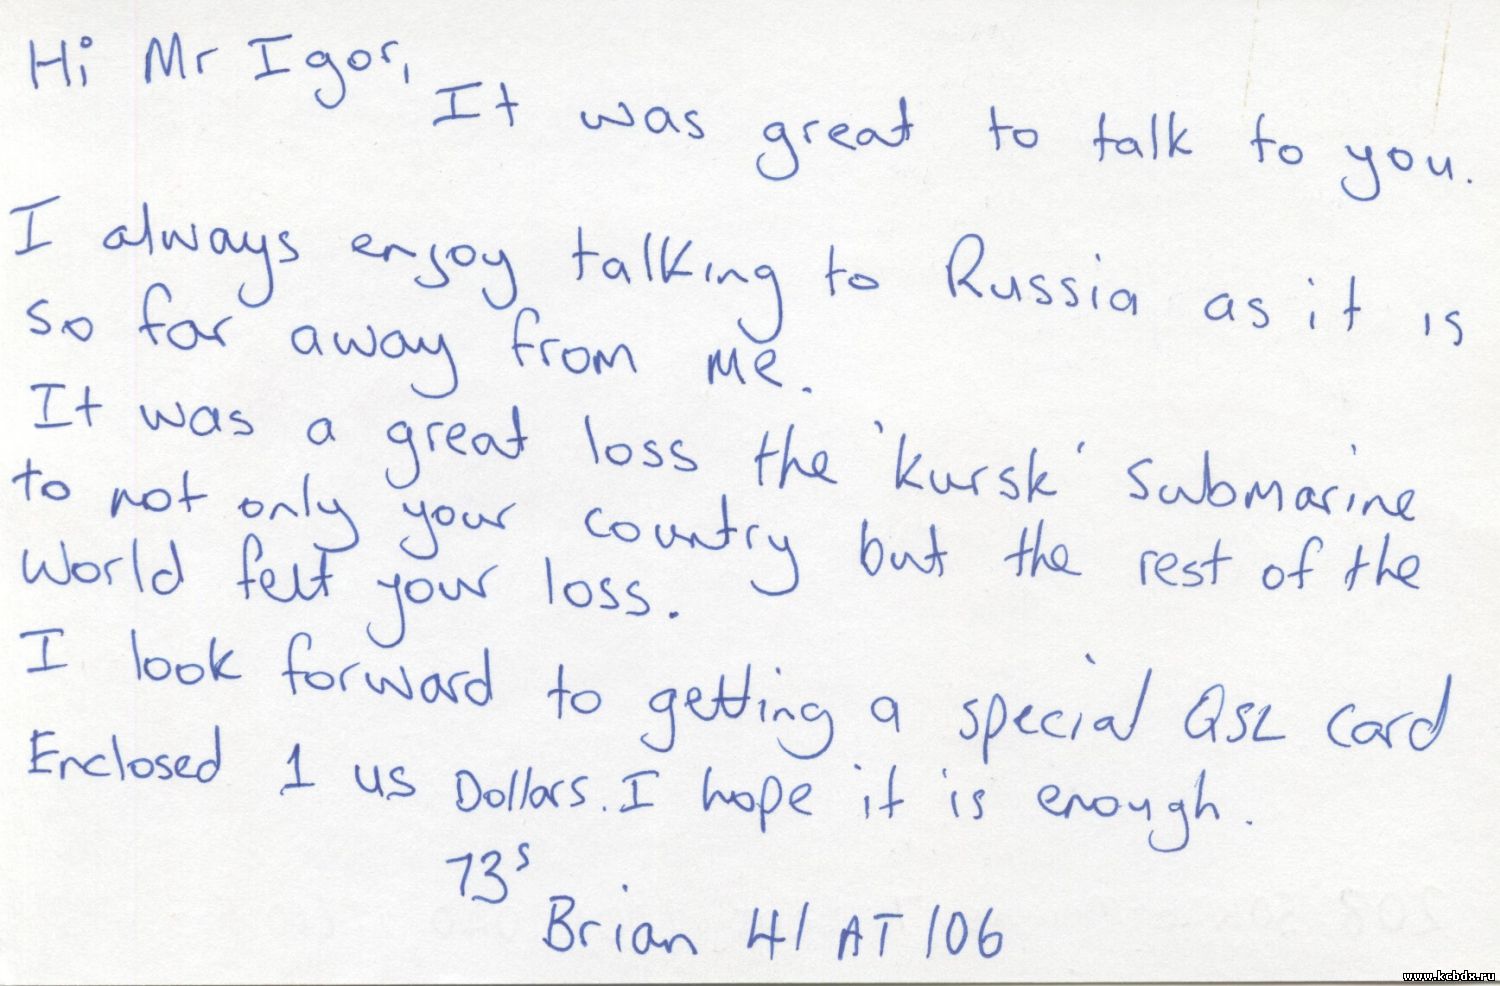 Hi Mr Igor,
It was great to talk to you.
I always enjoy talking to Russia as it is
so far away from me.
It was a great loss the 'kursk' submarine
to not only your country but the rest of the
world felt your loss.
I look forward to getting a special QSL card
Enclosed 1 us Dollars. I hope it is enough.
73s
Brian 41 AT 106
www.kcbdx.ru